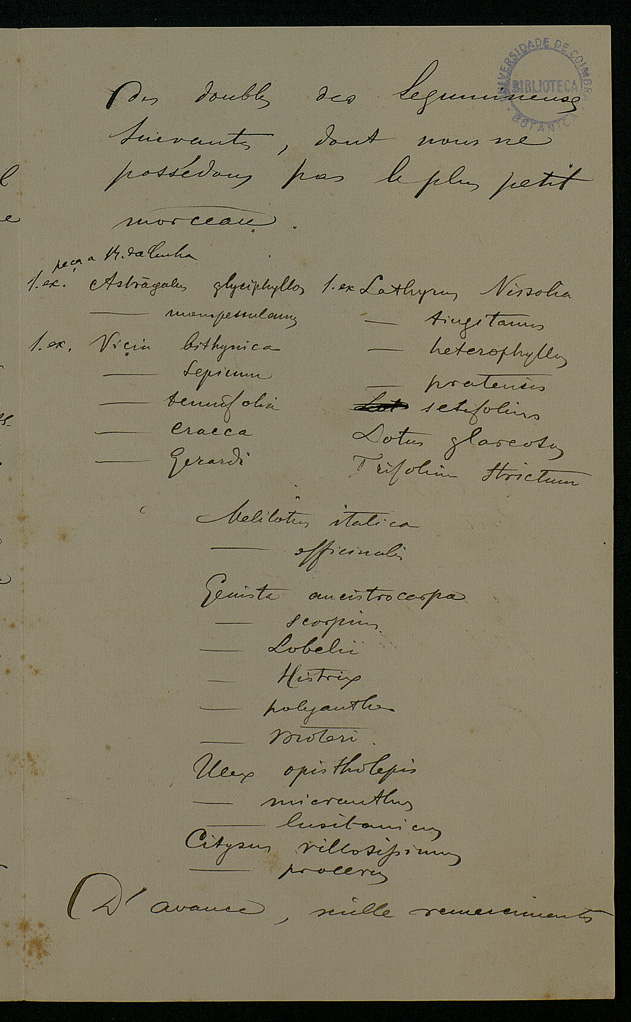 UNIVERSIDADE DE COIMBRA
BIBLIOTECA
BOTANICA
Des doubles des Legumineuses
suivantes, dont nous ne
possédons pas le plus petit
morceau.
peça a M. da Cunha
1. ex. Astragalus glyciphyllos
— monspessulanus
1. ex. Vicia bithynica
— sepium
— tenuifolia
— cracca
— Gerardi
1. ex Lathyrus Nissolia
— tingitanus
— heterophyllus
— pratensis
setifolius
Lotus glareosus
Trifolium strictum
Melilotus italica
— officinalis
Genista ancistrocarpa
— scorpius
— Lobelii
— Histrix
— polyanthos
— Broteri
Ulex opistholepis
— micranthus
— lusitanicus
Cytisus villosissimus
— procerus
D'avance, mille remerciments